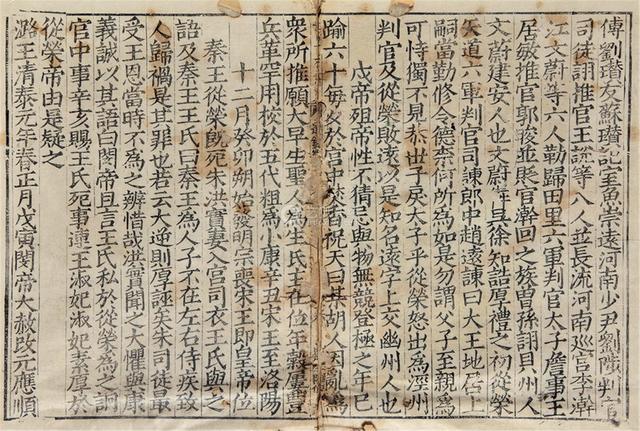 傅劉瓚友蘇瓚記室魚崇遠河南少尹劉陟判官
司徒詡推官王說等八人並長流河南巡官李澣
江文蔚等六人勒歸田里六軍判官太子詹事王
居敏推官郭晙並貶官澣回之族曽孫詡貝州人
文蔚建安人也文蔚奔吳徐知誥厚禮之初從榮
失道六軍判官司諫郎中趙遠諫曰大王地居上
嗣當勤修令德柰何所為如是勿謂父子至親為
可恃獨不見恭世子戾太子乎從榮怒出為涇州
判官及從榮敗遠以是知名遠字上交幽州人也
戊帝殂帝性不猜忌與物無競登極之年已
踰六十每夕於宮中焚香祝天曰某胡人因亂為
衆所推願天早生聖人為生民主在位年穀屢豐
兵革罕用校於五代粗為小康辛丑宋王至洛陽
十二月癸卯朔始發明宗喪宋王即皇帝位
秦王從榮旣死朱洪實妻入宮司衣王氏與之
語及秦王王氏曰秦王為人子不在左右侍疾致
人歸禍是其罪也若云大逆則厚誣矣朱司徒最
受王恩當時不為之辨惜哉洪實聞之大懼與康
義誠以其語白閔帝且言王氏私於從榮為之詗
宮中事辛亥賜王氏死事連王淑妃淑妃素厚於
從榮帝由是疑之
潞王清泰元年春正月戊寅閔帝大赦改元應順